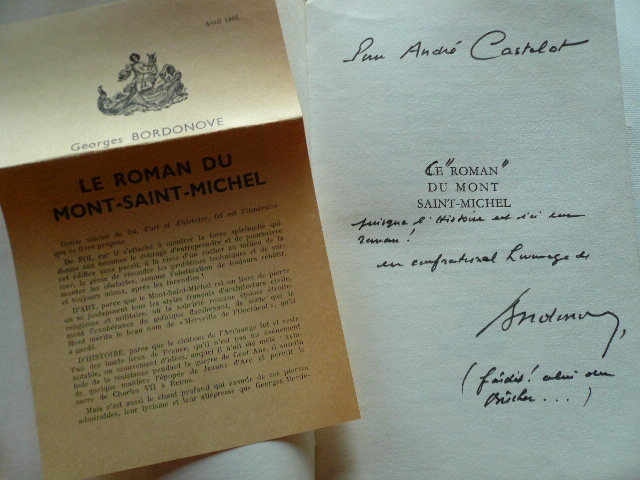 Avril 1966.
Georges BORDONOVE
LE ROMAN DU
MONT-SAINT-MICHEL
Douze siècles de foi, d'art et d'histoire, tel est l'itinéraire
que ce livre propose.
De FOI, car il s'attache à montrer la force spirituelle qui
donna aux hommes le courage d'entreprendre et de poursuivre
cet édifice sans pareil, à la cime d'un rocher au milieu de la
mer, la force de résoudre les problèmes techniques et de sur-
monter les obstacles, comme l'obstination de toujours rebâtir,
et toujours mieux, après les incendies !
D'ART, parce que le Mont-Saint-Michel est un livre de pierre
où se juxtaposent tous les styles français d'architecture civile,
religieuse et militaire, où la sobriété romane épouse étroite-
ment l'exubérance du gothique flamboyant, de sorte que le
Mont mérita le beau nom de « Merveille de l'Occident », qu'il
a gardé.
D'HISTOIRE, parce que le château de l'Archange fut et reste
l'un des hauts lieux de France, qu'il n'est pas un événement
notable, un mouvement d'idées, auquel il n'ait été mêlé : sym-
bole de la résistance pendant la guerre de Cent Ans, il ouvrit
de quelque manière l'épopée de Jeanne d'Arc et permit le
sacre de Charles VII à Reims.
Mais c'est aussi le chant profond qui exsude de ces pierres
admirables, leur lyrisme et leur allégresse que Georges Bordo-
Pour André Castelot
LE "ROMAN"
DU MONT
SAINT-MICHEL
puisque l'Histoire est ici un
roman !
en confraternel hommage de
Bordonove,
( celui du
Bûcher... )